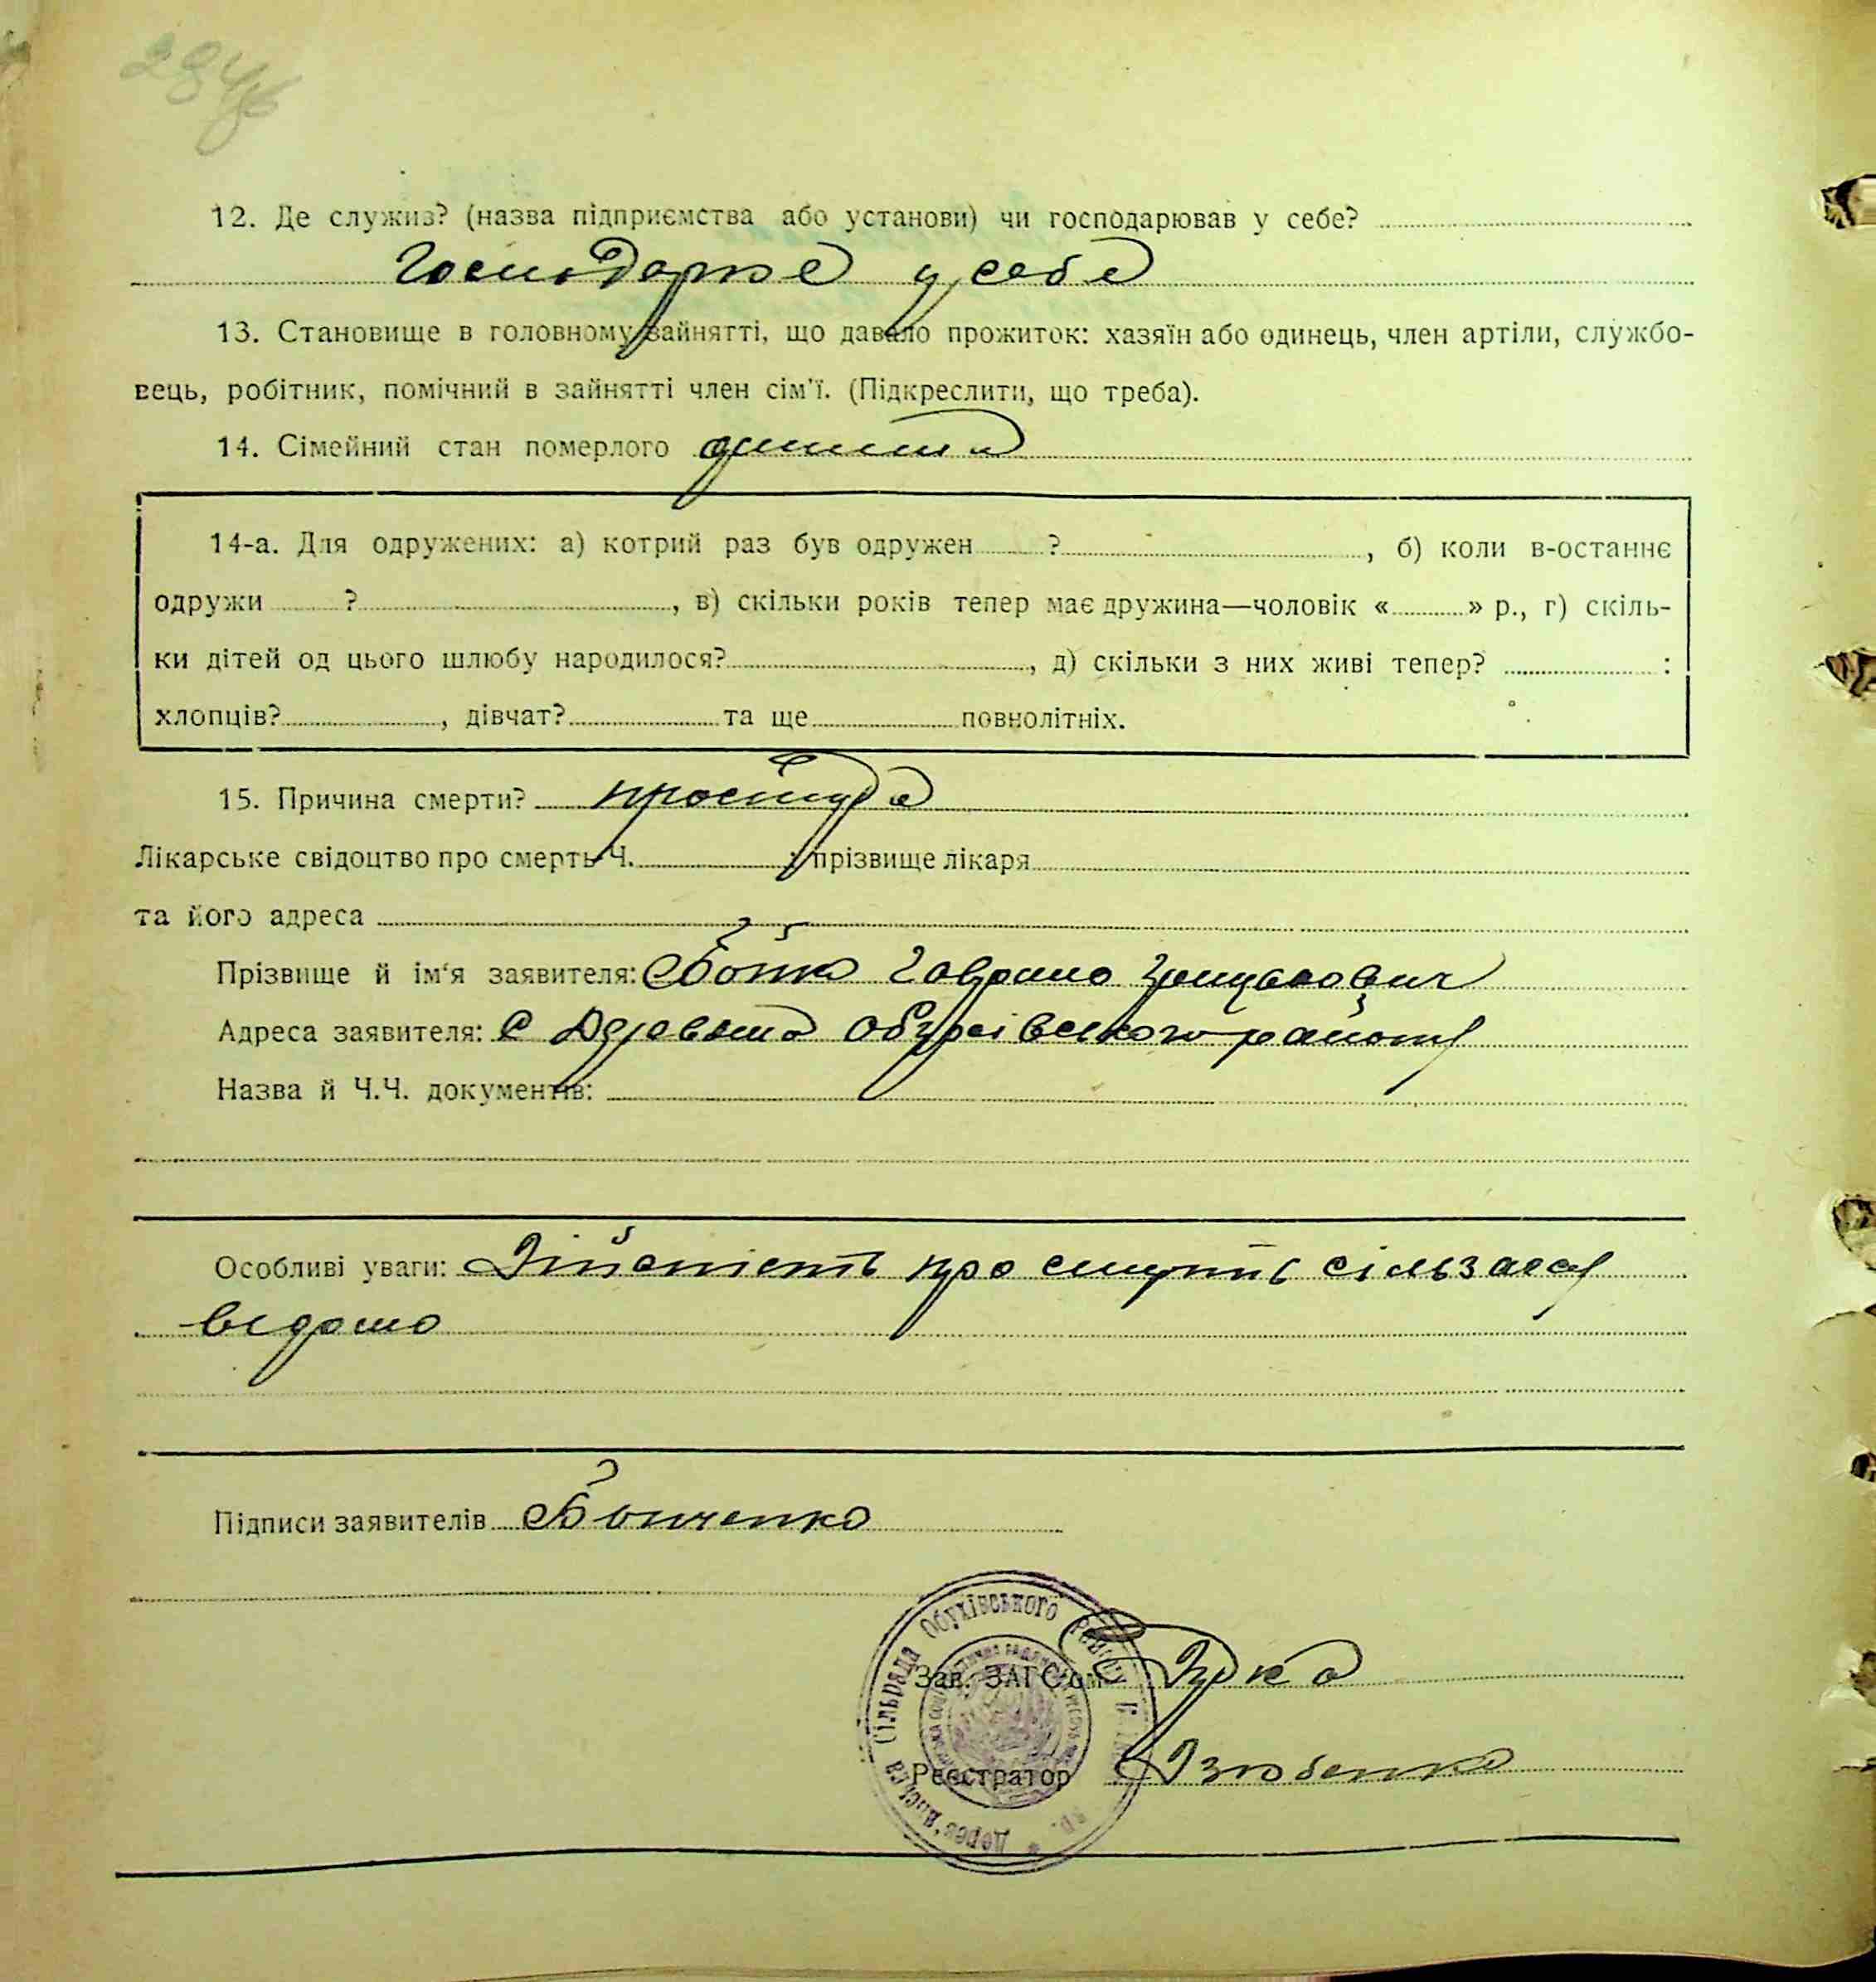 284б
12. Де служив? (назва підприємства або установи) чи господарював у себе?
Господарює у себе
13. Становище в головному зайнятті, що давало прожиток: хазяїн або одинець, член артіли, службо-
вець, робітник, помічний в зайнятті член сім'ї. (Підкреслити, що треба).
14. Сімейний стан померлого дитина
14-а. Для одружених: а) котрий раз був одружен ? , б) коли в-останнє
одружи ? , в) скільки років тепер має дружина—чоловік « » р., г) скіль-
ки дітей од цього шлюбу народилося? , д) скільки з них живі тепер? :
хлопців? , дівчат? та ще повнолітніх.
15. Причина смерти? простуда
Лікарське свідоцтво про смерть Ч. ; прізвище лікаря
та його адреса
Прізвище й ім'я заявителя: Бойко Гаврило
Адреса заявителя: с Деревьяна Обухівського району
Назва й Ч.Ч. документів:
Особливі уваги: Дійсність про смерть сільзагсу
відомо
Підписи заявителів
Дерев'янська Сільрада Обухівського Району
Зав. ЗАГСом
Реєстратор